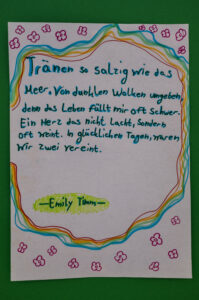 Tränen so salzig wie das
Meer. Von dunklen Wolken umgeben,
denn das Leben fällt mir oft schwer.
Ein Herz das nicht lacht, sondern
oft weint. In glücklichen Tagen, waren
wir zwei vereint.
—Emily Timm—